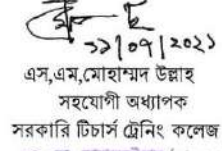 ১১/০৭/২০২১
এস,এম,মোহাম্মদ উল্লাহ
সহযোগী অধ্যাপক
সরকারি টিচার্স ট্রেনিং কলেজ